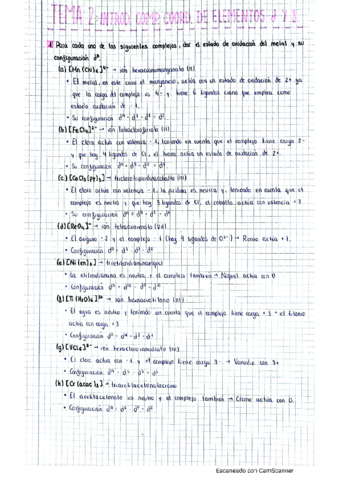 TEMA 2: INTROD. COMP. COORD. DE ELEMENTOS d Y f
1. Para cada uno de los siguientes complejos, dar el estado de oxidación del metal y su
configuración dⁿ
(a) [Mn(CN)₆]⁴⁻ → ión hexacianomanganato (II)
• El metal, en este caso el manganeso, actúa con un estado de oxidación de 2+ ya
que la carga del complejo es 4- y tiene 6 ligandos ciano que emplea como
estado oxidación de -1.
• Su configuración
(b) [FeCl₄]²⁻ → ión tetracloroferrato (II)
• El cloro actúa con valencia -1, teniendo en cuenta que el complejo tiene carga 2-
y que hay 4 ligandos de Cl, el hierro actúa un estado de oxidación de 2+.
• Configuración
(c) [CoCl₃(py)₃] → triclorotripiridinacobalto (III)
• El cloro actúa con valencia -1, la piridina es neutra y, teniendo en cuenta que el
complejo es neutro y que hay 3 ligandos de Cl, el cobalto actúa con valencia +3
• Su configuración
(d) [ReO₄]⁻ → ión
• El oxígeno -2 y el complejo -1 (hay 4 ligandos de O²⁻) → Renio actúa
• Configuración
(e) [Ni(en)₃] →
• La etilendiamina es neutra, y el complejo también → Níquel actúa con 0
• Configuración
(f) [Ti(H₂O)₆]³⁺ → ión hexaacuotitanio (III)
• El agua es neutra y teniendo en cuenta que el complejo tiene carga +3 el titanio
actúa con carga +3
• Configuración
(g) [VCl₆]³⁻ → ión hexaclorovanadato (III)
• El cloro actúa con -1 y el complejo tiene carga 3- → Vanadio con 3+
• Configuración
(h) [Cr(acac)₃] →
• El acetilacetonato es neutro y el complejo también → Cromo actúa con 0.
• Configuración
Escaneado con CamScanner